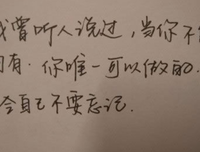 我曾听人说过，当你不
有．你唯一可以做的．
令自己不要忘记．